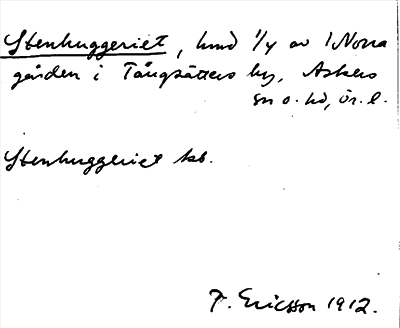 Stenhuggeriet, lund 1/4 av 1 Norra
gården i Tångsätters by, Askers
sn o. hd, ör. l.
Stenhuggeriet kb.
T. Ericsson 1912.